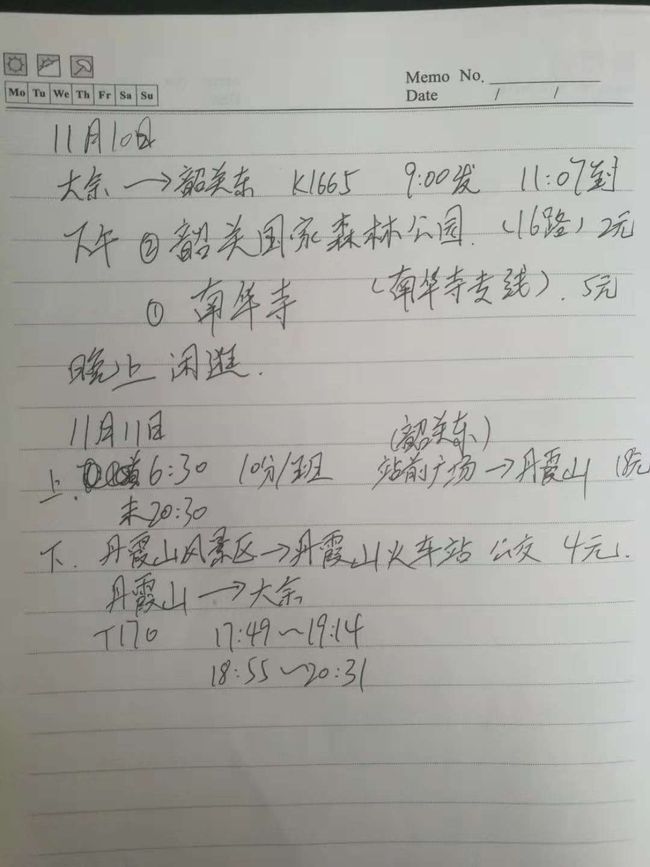 Mo Tu We Th Fr Sa Su
Memo No.
Date / /
11月10日
大余→韶关东 K1665 9:00发 11:07到
下午 ② 韶关国家森林公园.(16路)2元
① 南华寺 (南华寺专线).5元
晚上 闲逛.
11月11日 (韶关东)
上. 首6:30 10分/班 站前广场→丹霞山 18元
末20:30
下. 丹霞山风景区→丹霞山火车站 公交 4元.
丹霞山→大余
T170 17:49~19:14
18:55~20:31